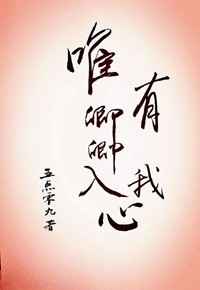 有我
唯卿卿入心
五点零九著